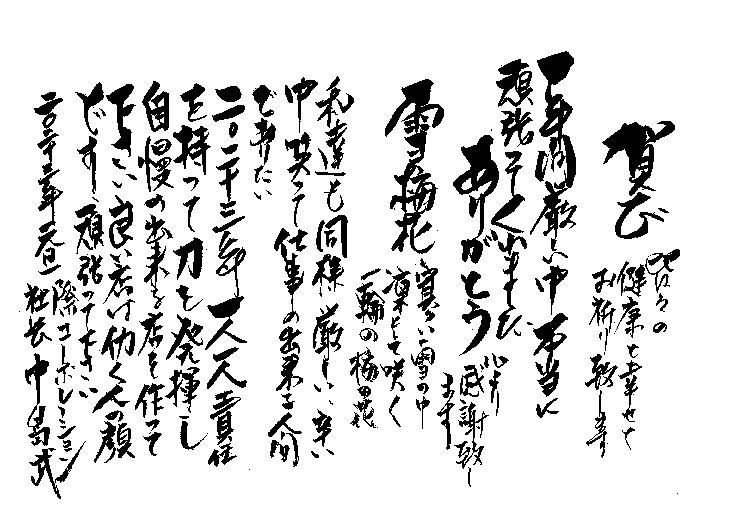 賀び
皆々の
健康と幸せを
お祈り致します
一年間厳しい中本当に
頑張ってくださり
ありがとう
心より
感謝致し
ます
雪梅花
寒い雪の中
凛として咲く
一輪の梅の花
私達も同様厳しい、辛い
中笑って仕事の出来る人間
で有りたい
二〇二十三年一人一人責任
を持って力を発揮し
自慢の出来る店を作って
下さい良い店は働く人の顔
です。頑張って下さい
二〇二十三年元旦
際コーポレーション
社長中島武